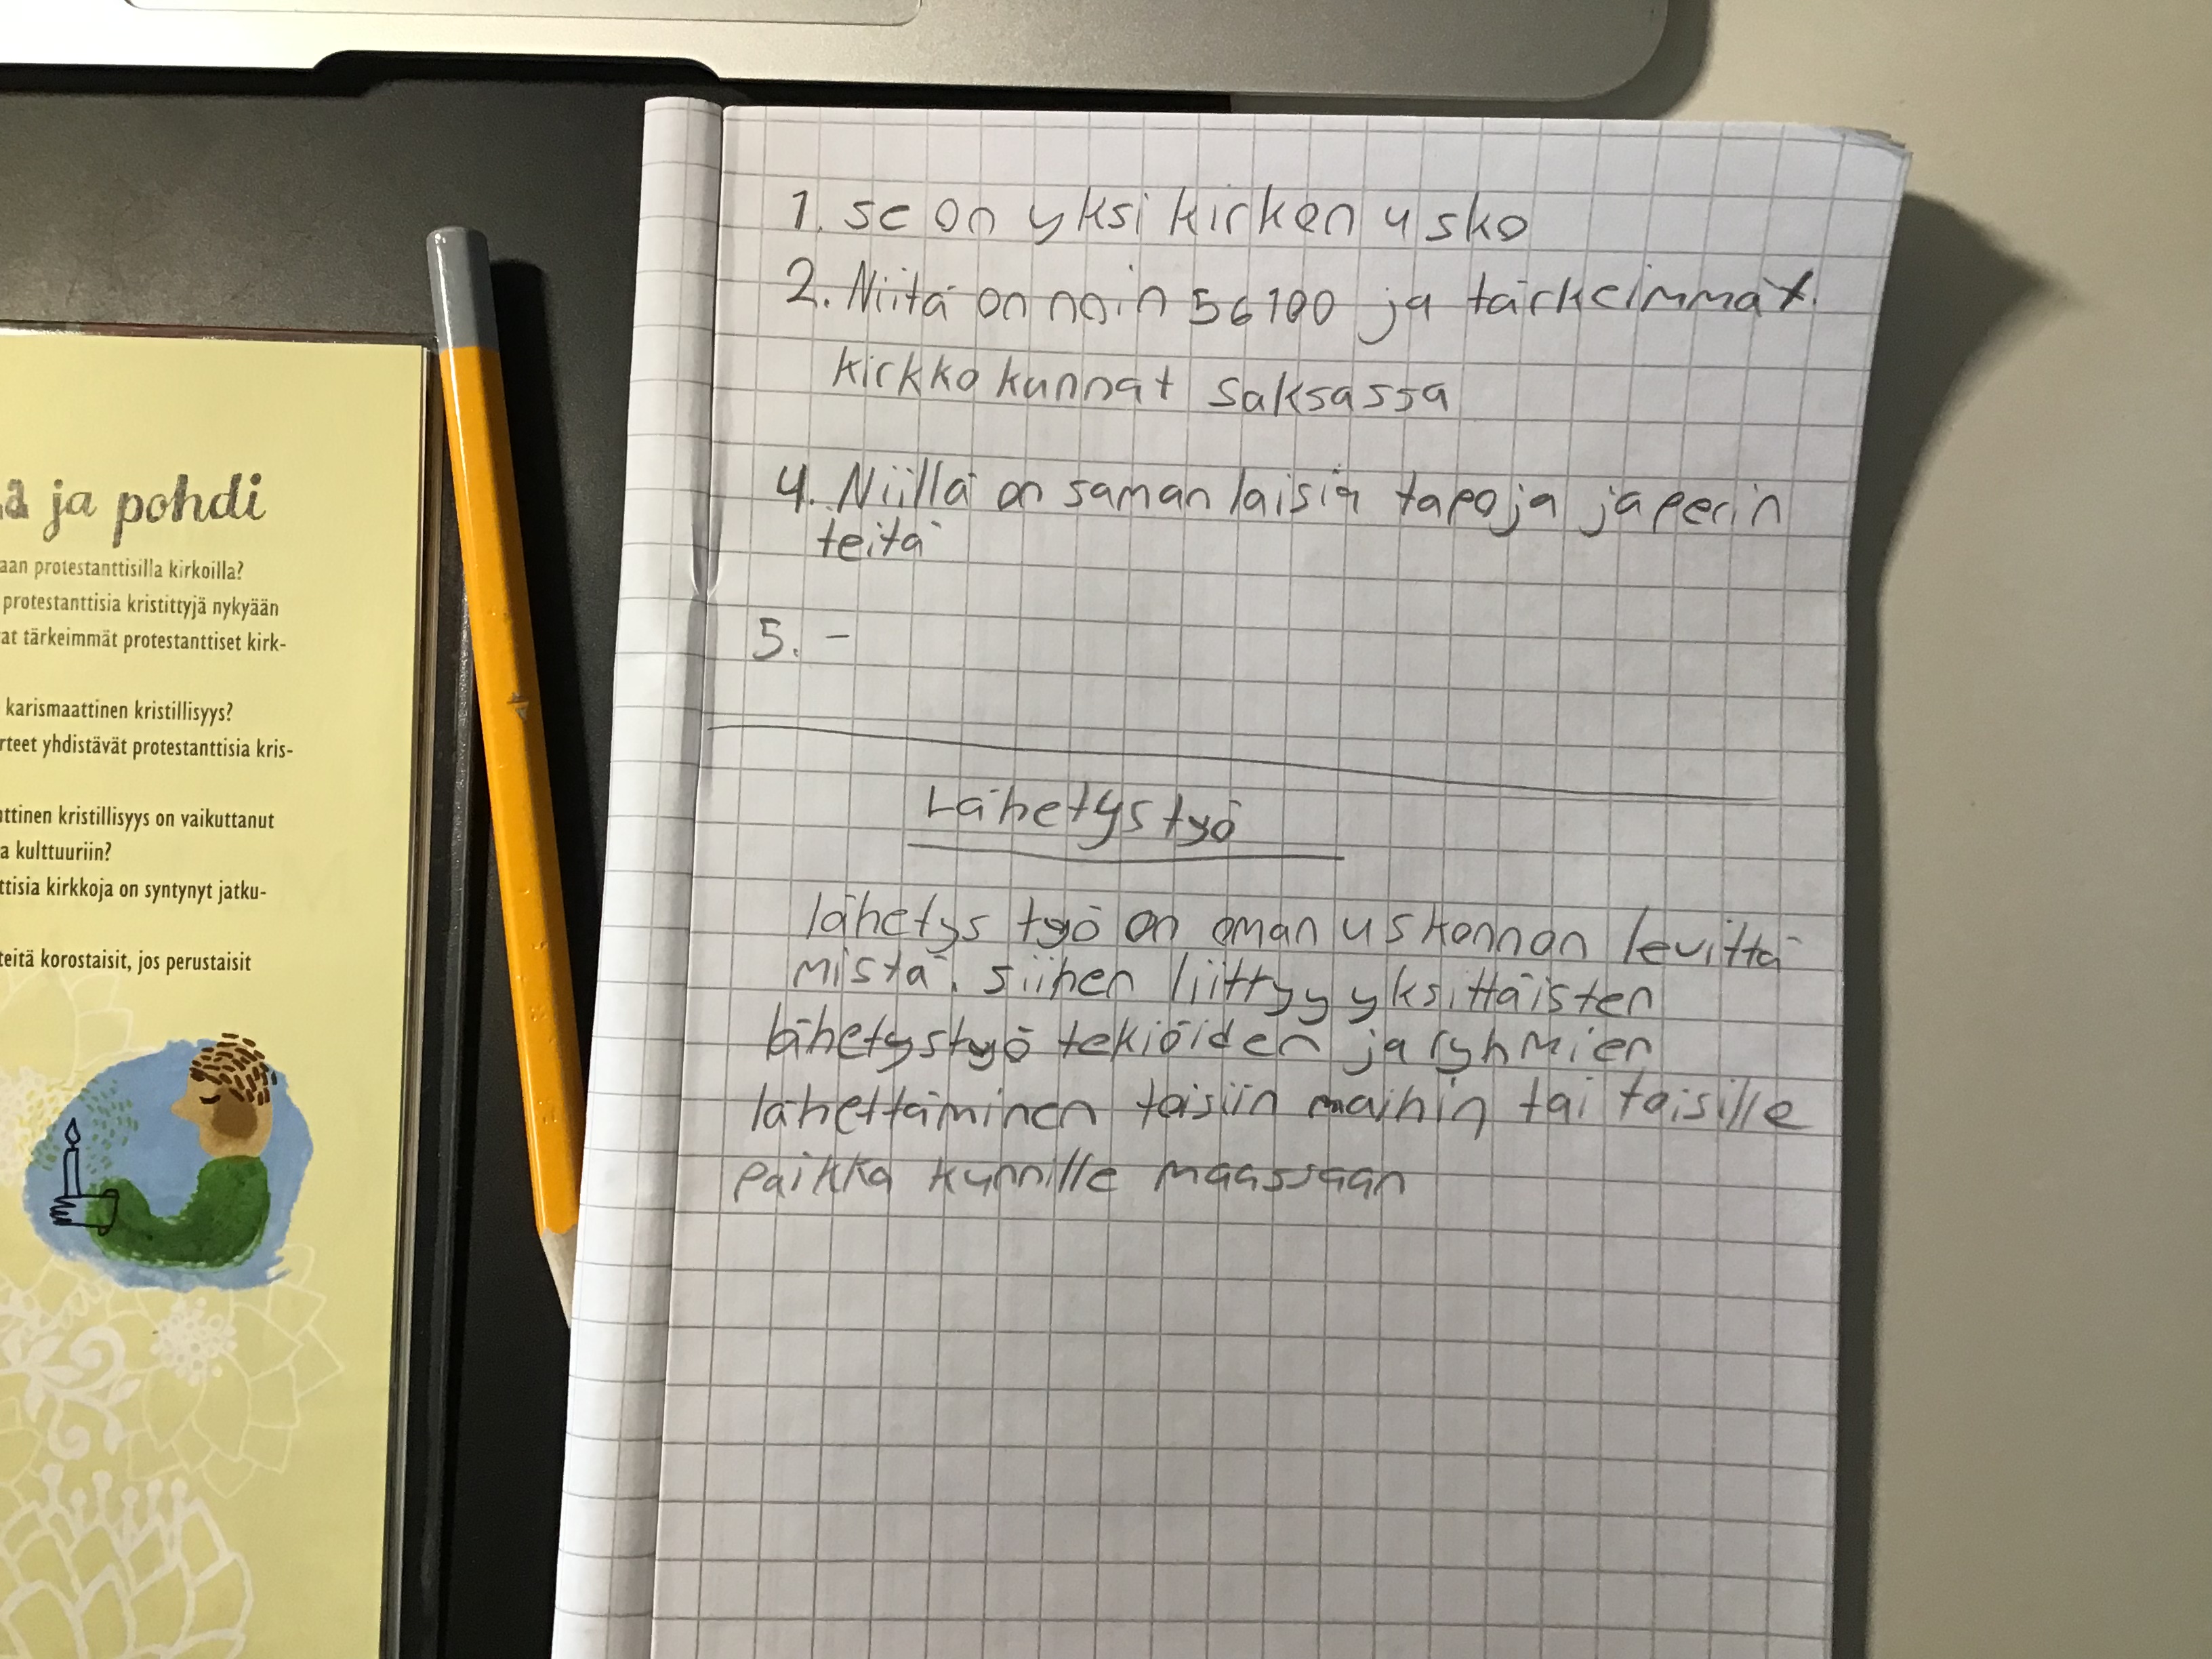 ä ja pohdi
aan protestanttisilla kirkoilla?
protestanttisia kristittyjä nykyään
at tärkeimmät protestanttiset kirk-
karismaattinen kristillisyys?
rteet yhdistävät protestanttisia kris-
ttinen kristillisyys on vaikuttanut
a kulttuuriin?
ttisia kirkkoja on syntynyt jatku-
teitä korostaisit, jos perustaisit
1. se on yksi kirken usko
2. Niitä on noin 56100 ja tärkeimmät
kirkko kunnat saksassa
4. Niillä on saman laisia tapoja ja perin
teitä
5. -
Lähetystyö
lähetys työ on oman uskonnon levittä
mistä. siihen liittyy yksittäisten
lähetystyö tekiöiden ja ryhmien
lähettäminen toisiin maihin tai toisille
paikka kunnille maassaan